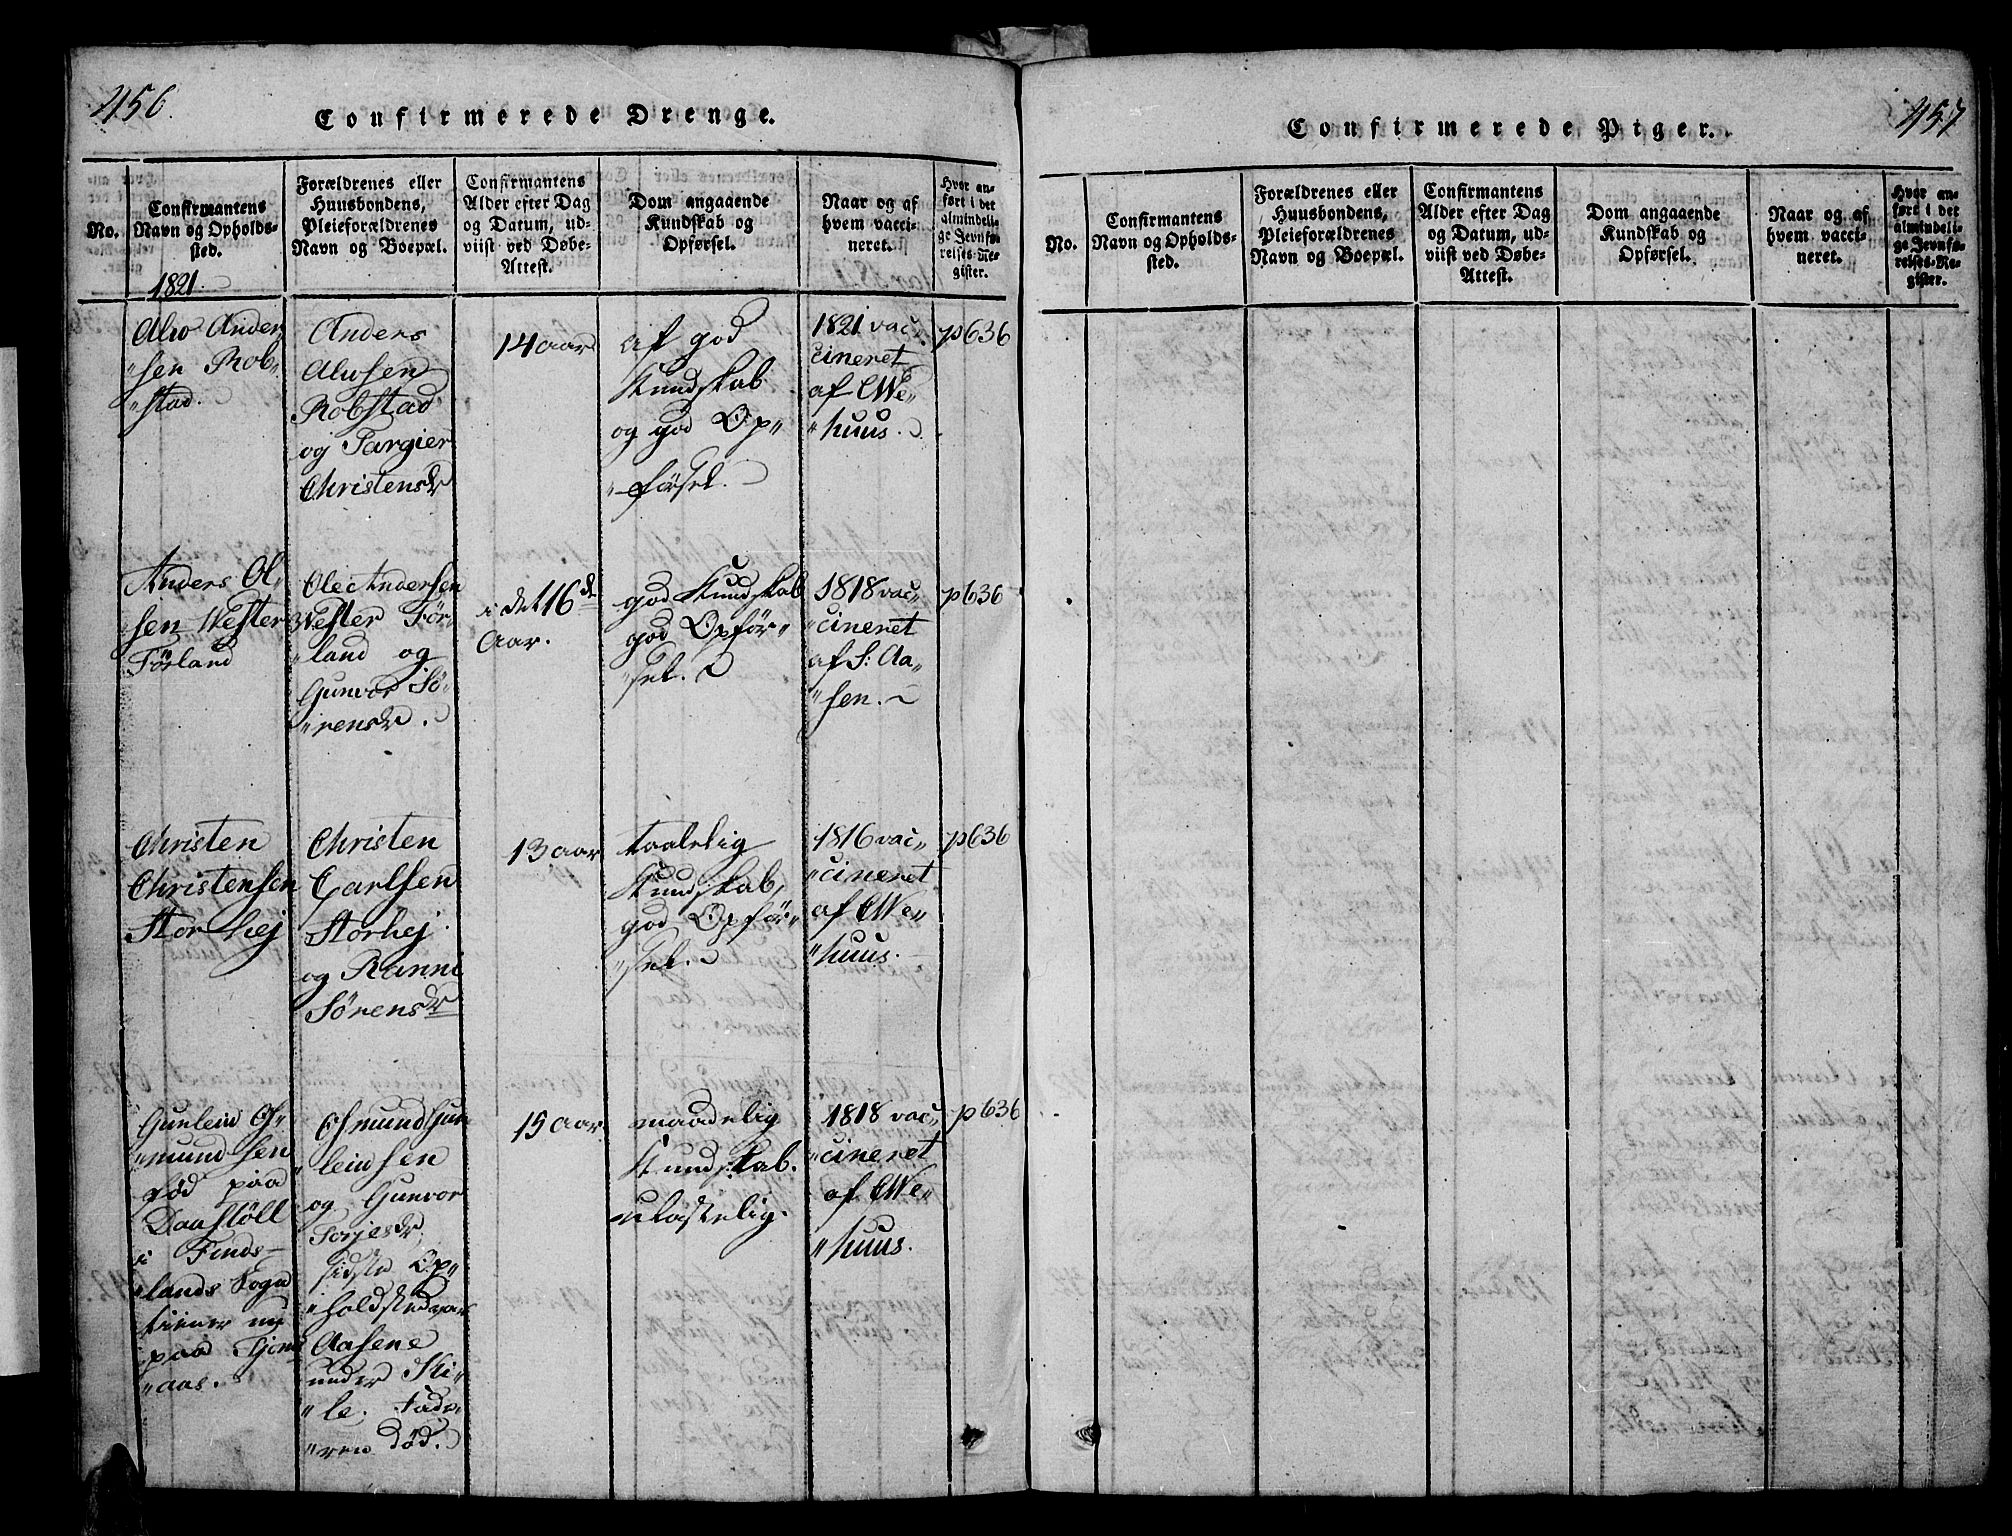 456.
Confirmerede Drenge.
No.
Confirmantens
Navn og Opholds-
sted.
1821.
Forældrenes eller
Huusbondens,
Pleieforældrenes
Navn og Boepæl.
Confirmantens
Alder efter Dag
og Datum, ud-
viist ved Døbe-
Attest.
Dom angaaende
Kundskab og
Opførsel.
Naar og af
hvem vacci-
neret.
Hvor an-
ført i det
almindeli-
ge Jevnfø-
relses-Re-
gister.
Alwo Ander,
"sen Rob"
"stad.
Anders
Alwsen
Robstad
og Targier
Christensdr
14 aar
af god
Kundskab
og god Op"
"førsel.
1821 vac"
cineret
af C We"
"huus.
p636
Anders Ol"
"sen Wester
Førland
Ole Andersen
Wester Før"
"land og
Gunvor Sø"
"rensdr.
i det 16de
Aar.
god Kundskab
god Opför"
"sel.
1818 vac"
"cineret
af S: Aa"
"sen.
p636
Christen
Christensen
Storhej
Christen
Carlsen
Storhej
og Ranni
Sørensdr
13 aar
taalelig
Kundskab,
god Opför"
"sel.
1816 vac"
"cineret
af C We"
"huus.
p636
Gunleiu Os"
"mundsen
fød paa
Daastöll
i Finds-
"lands Sogn
tiener nu
paa Tjom"
"aas.
Osmund Gun
"leiusen
og Gunvor
Torjesdr,
sidste Op"
"holdsted var
Aasene
under Ki"
"le. Fade"
"ren död.
15 Aar
maadelig
Kundskab.
ulastelig.
1818 vac"
"cineret
af C We"
"huus.
p636
457
Confirmerede Piger.
No.
Confirmantens
Navn og Opholds-
sted.
Forældrenes eller
Huusbondens,
Pleieforældrenes
Navn og Boepæl.
Confirmantens
Alder efter Dag
og Datum, ud-
viist ved Døbe-
Attest.
Dom angaaende
Kundskab og
Opførsel.
Naar og af
hvem vacci-
neret.
Hvor an-
ført i det
almindeli-
ge Jevnfø-
relses-Re-
gister.